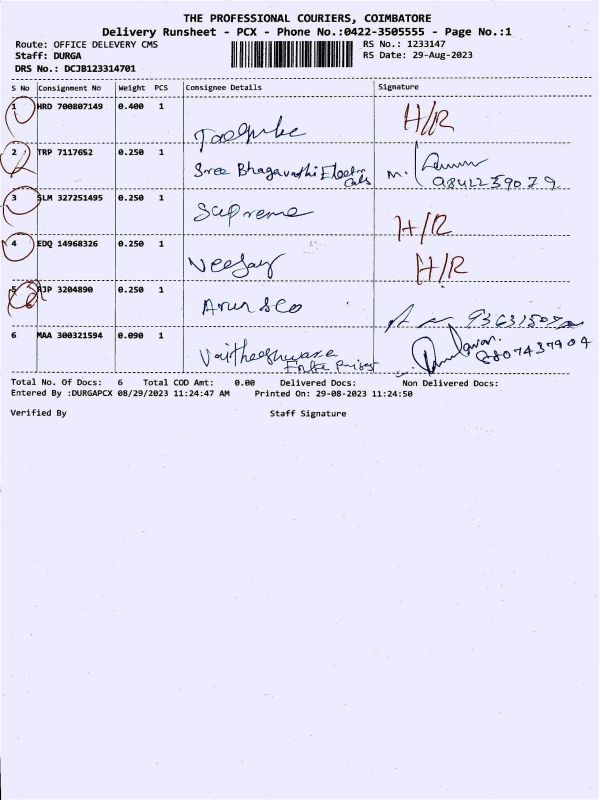 THE PROFESSIONAL COURIERS, COIMBATORE
Delivery Runsheet - PCX - Phone No.:0422-3505555 - Page No.:1
Route: OFFICE DELEVERY CMS
RS No.: 1233147
Staff: DURGA
RS Date: 29-Aug-2023
DRS No.: DCJB123314701
S No Consignment No Weight PCS Consignee Details Signature
1 HRD 700807149 0.400 1 H/R
2 TRP 7117652 0.250 1 Sree Bhagavathi Electri M.
cals 9842259029
3 SLM 327251495 0.250 1 Supreme H/R
4 EDQ 14968326 0.250 1 Veejay H/R
5 AJP 3204890 0.250 1 Arun & Co
6 MAA 300321594 0.090 1 Vaitheeshwara 8807437904
Enterprises
Total No. Of Docs: 6 Total COD Amt: 0.00 Delivered Docs: Non Delivered Docs:
Entered By :DURGAPCX 08/29/2023 11:24:47 AM Printed On: 29-08-2023 11:24:50
Verified By Staff Signature